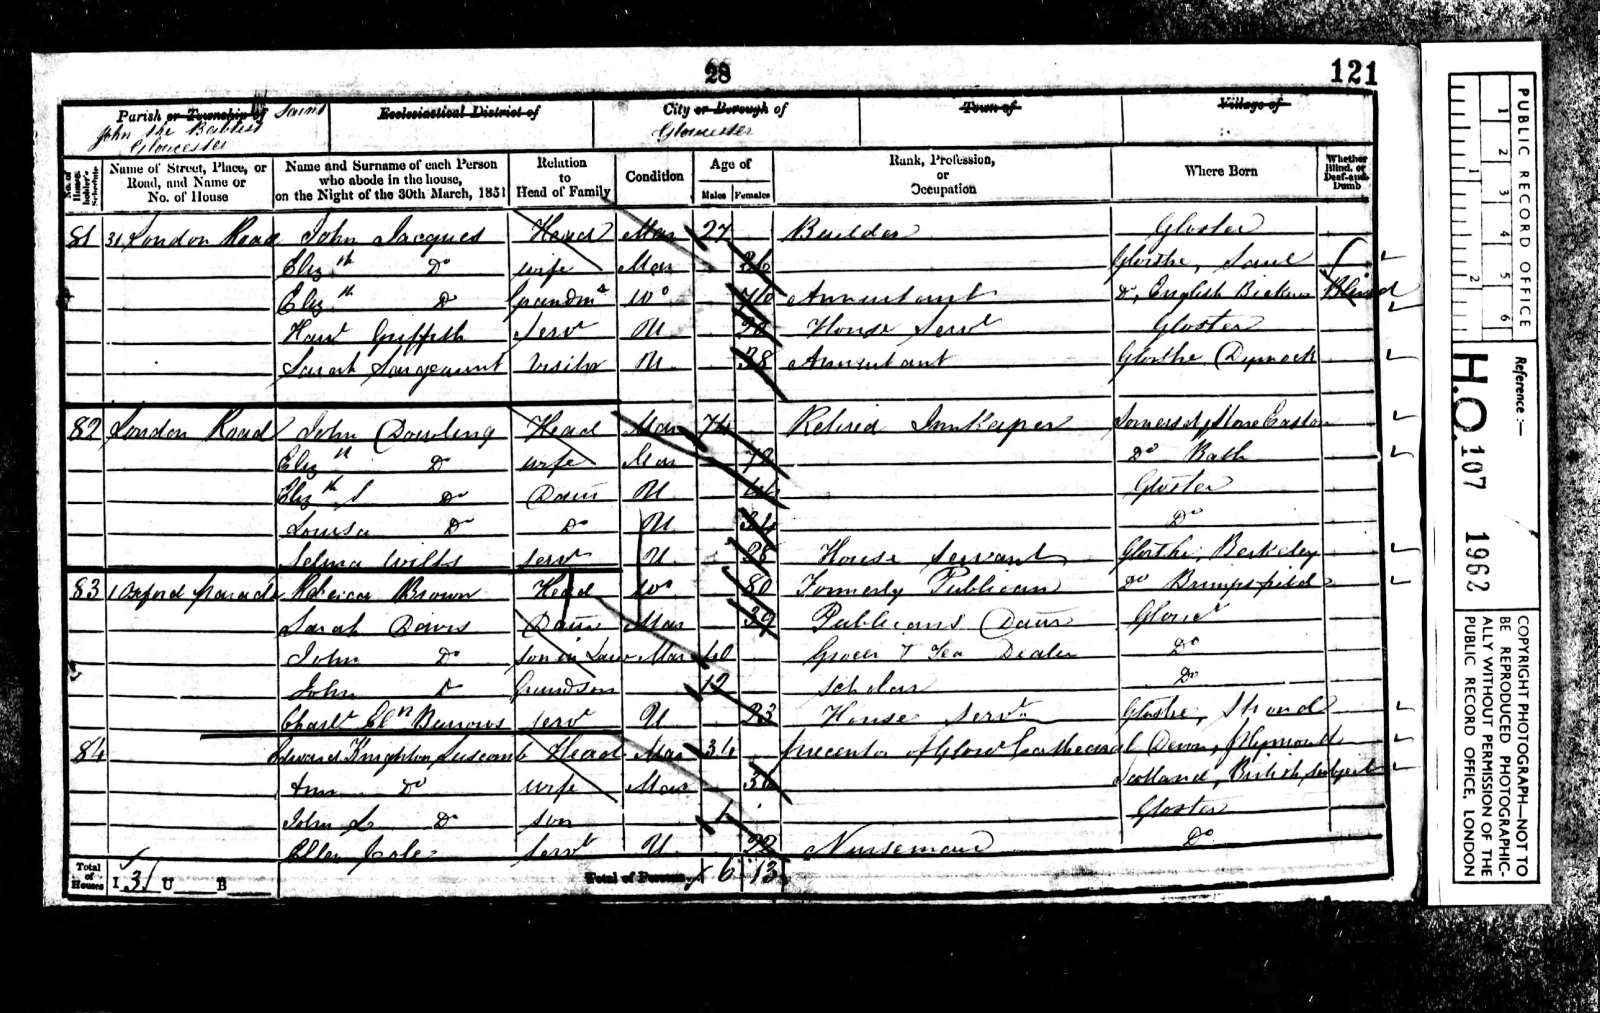 28
121
Parish or Township of Saint
John the Baptist
Gloucester
Ecclesiastical District of
City or Borough of
Gloucester
Town of
Village of
No. of House-holder's Schedule
Name of Street, Place, or Road, and Name or No. of House
Name and Surname of each Person who abode in the house, on the Night of the 30th March, 1851
Relation to Head of Family
Condition
Age of
Males Females
Rank, Profession, or Occupation
Where Born
Whether Blind, or Deaf-and-Dumb
81 31 London Road John Jacques Head Mar 27 Builder Gloster
Eliz th Do wife Mar 26 Glosshe, Saul
Eliz th Do Grandmr Wo 76 Annuitant Do, English Bicknor Blind
Harrt Griffith Servt U House Servt Gloster
Sarah Sargeaunt Visitor U 38 Annuitant Glosshe Dymock
82 London Road John Dowling Head Mar 74 Retired Innkeeper Somerset, Stone Easton
Eliz th Do wife Mar 72 Do Bath
Eliz th S Do Daur U Gloster
Louisa Do Do U 34 Do
Selina Wilts Servt U 28 House Servant Glosshe, Berkeley
83 1 Oxford Parade Rebecca Brown Head Wo 80 Formerly Publican Do Brimpsfield
Sarah Davis Daur Mar 39 Publicans Daur Glousr
John Do Son in Law Mar 40 Grocer & Tea Dealer Do
John Do Grandson 12 Scholar Do
Charlt Eln Burrows Servt U 23 House Servt Glosshe, Stroud
84 Edward Knighton Head Mar 34 Precentor of Glousr Cathedral Devon, Plymouth
Ann Do wife Mar 36 Scotland, British Subject
John L Do Son 1 Gloster
Ellen Cole Servt U 22 Nursemaid Do
Total of Houses I 3 U B
Total of Persons 6 13
PUBLIC RECORD OFFICE
1 2 3 4 5 6
1 2
Reference :—
H.O. 107 1962
COPYRIGHT PHOTOGRAPH—NOT TO
BE REPRODUCED PHOTOGRAPHIC-
ALLY WITHOUT PERMISSION OF THE
PUBLIC RECORD OFFICE, LONDON